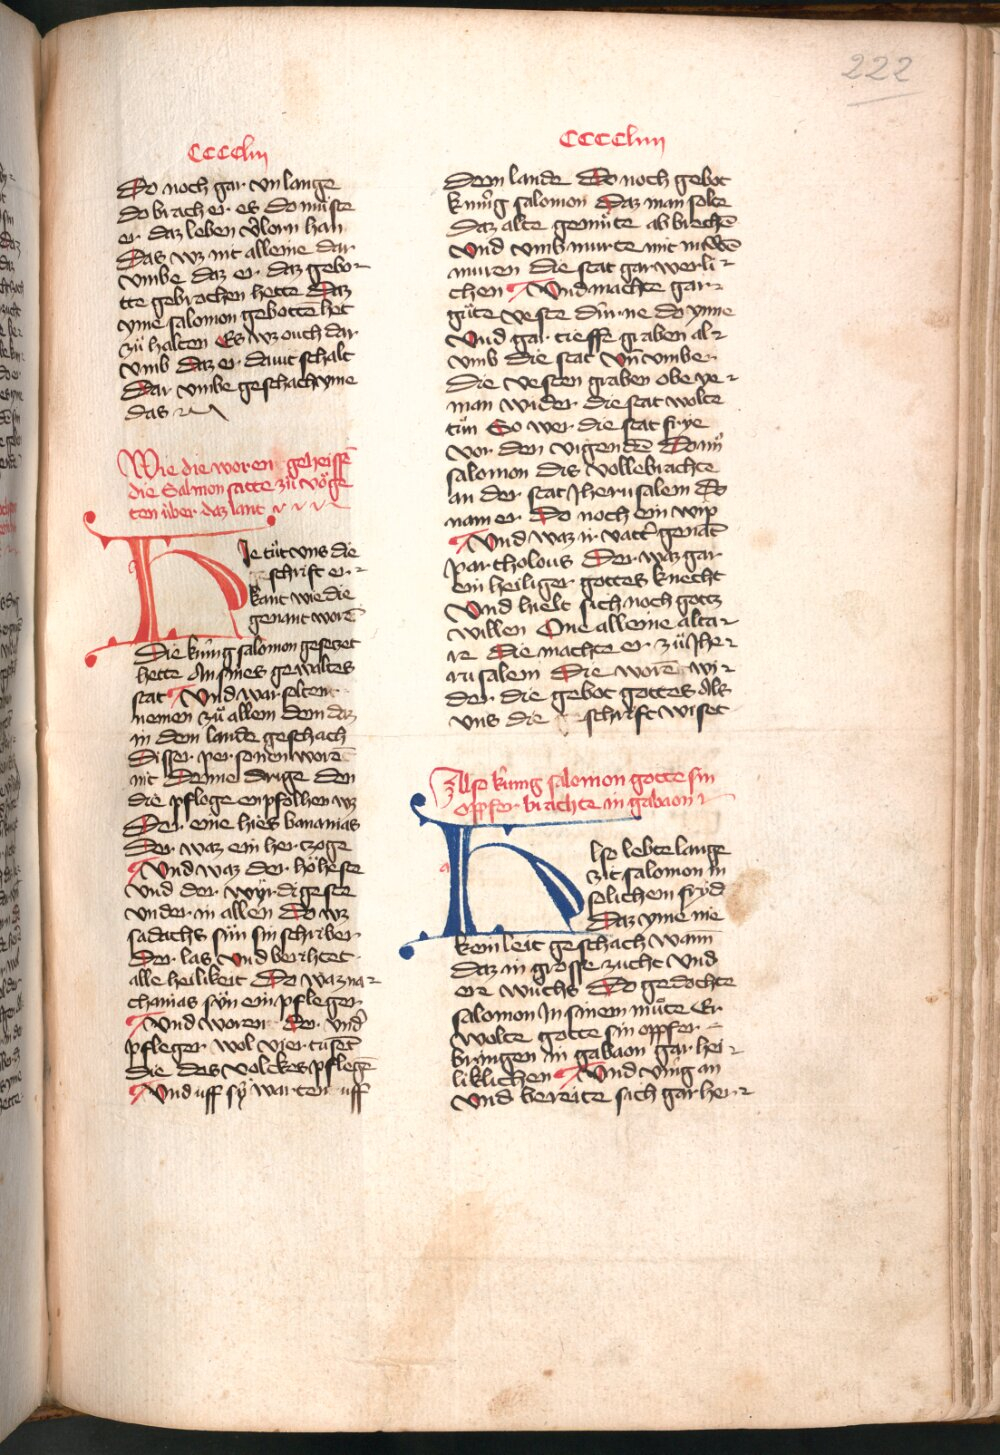 222
CCCCliii
Do noch gar vnlange
do brach er es do muͤste
er daz leben v̓lorn han
Das wz nit alleine dar
vmbe daz er daz gebo-
tte gebrochen hette Daz
yme salomon gebottē het
zuͦ halten Es wz ouch dar
vmb daz er dauit schalt
Dar vmbe geschach yme
das
Wie die woren geheissē
die Salmon satte zuͦ voͤge
ten úber daz lant
Hie tuͦt vns die
geschrift er-
kant wie die
genant worē
Die kúnig salomon gesetzet
hette An sines gewaltes
stat Vnd war soltent
nemen zuͦ allem dem daz
in dem lande geschach
Disser personen worē
nit Denne drige den
die pfloge enpfolhen wz
Der eine hies bananias
Der waz ein hertzoge
Vnd waz der hoͤheste
vnd der wyrdigeste
vnder in allen Do wz
sadachs sún sin schriber
Der las vnd berihtet
alle heilikeit Do waz na-
thanias sún ein pfleger
Vnd woren der vnd̓
pfleger wol vier tusēt
die des volckes pflegē
Vnd uff sy̋ warten uff
CCCCliiii
dem lande Do noch gebot
kúnig salomon Daz man solte
daz alte gemúre abbrechē
vnd vmb murte mit núwē
muren die stat gar werli-
chen Vnd machte gar
guͦte veste dúrne do ynne
Vnd gar tieffe graben al-
vmb die stat Vn̄ vmber
die vesten graben obe ye-
man wider die stat wolte
tuͦn So wer die stat frye
vor den vigendē Do nuͦ
salomon dis vollebrachte
an der stat Jherusalem Do
nam er Do noch ein wip
Vnd waz ir vatt̓ genāt
partholous Der waz gar
ein heiliger gottes knecht
Vnd hielt sich noch gotz
willen One alleine alta-
re die machte er zuͦ Jhe-
rusalem Die worē wi-
der die gebot gottes Als
vns die geschrift wiset
Also kúnig salomon gotte sin
opffer brachte in gabaon
Also lebte lange
zit salomon in
solichem fryd
Daz yme nie
kein leit geschach wann
daz in grosse zucht vnd
ere wuͦchs Do gedochte
salomon in sinem muͦte Er
wolte gotte sin opffer
bringen in gabaon gar hei-
liklichen Vnd ving an
vnd bereite sich gar her-